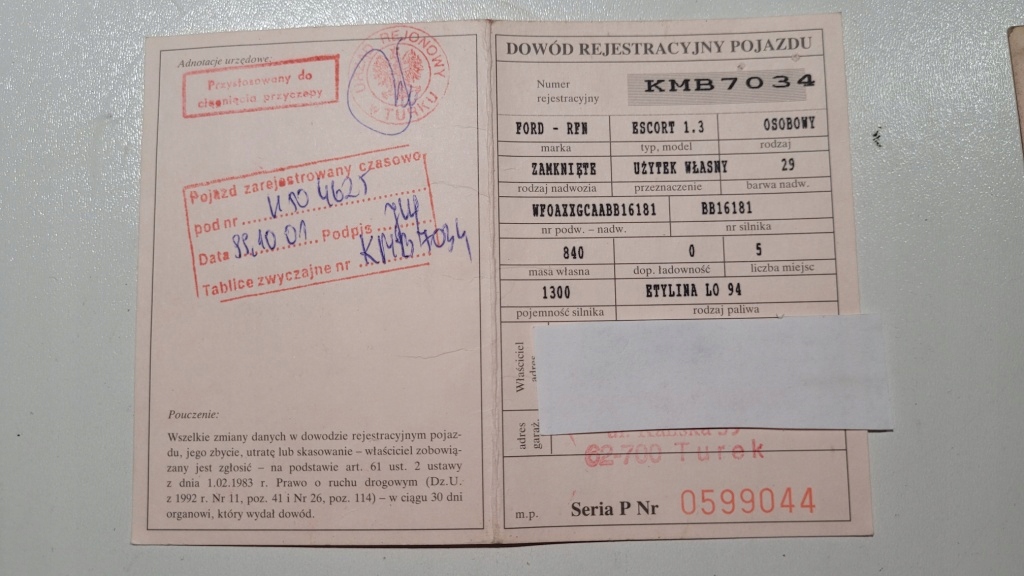 Adnotacje urzędowe:
Przystosowany do
ciągnięcia przyczepy
URZĄD REJONOWY
w TURKU
Pojazd zarejestrowany czasowo
pod nr ......... 4625
Data 99.10.01 ...... Podpis
Tablice zwyczajne nr KMB 7034
Pouczenie:
Wszelkie zmiany danych w dowodzie rejestracyjnym pojaz-
du, jego zbycie, utratę lub skasowanie – właściciel zobowią-
zany jest zgłosić – na podstawie art. 61 ust. 2 ustawy
z dnia 1.02.1983 r. Prawo o ruchu drogowym (Dz.U.
z 1992 r. Nr 11, poz. 41 i Nr 26, poz. 114) – w ciągu 30 dni
organowi, który wydał dowód.
DOWÓD REJESTRACYJNY POJAZDU
Numer
rejestracyjny
KMB7034
FORD - RFN ESCORT 1.3 OSOBOWY
marka typ, model rodzaj
ZAMKNIĘTE UŻYTEK WŁASNY 29
rodzaj nadwozia przeznaczenie barwa nadw.
WFOAXXGCAABB16181 BB16181
nr podw. – nadw. nr silnika
840 0 5
masa własna dop. ładowność liczba miejsc
1300 ETYLINA LO 94
pojemność silnika rodzaj paliwa
Właściciel
adres
adres
garaż.
62-700 Turek
m.p. Seria P Nr 0599044